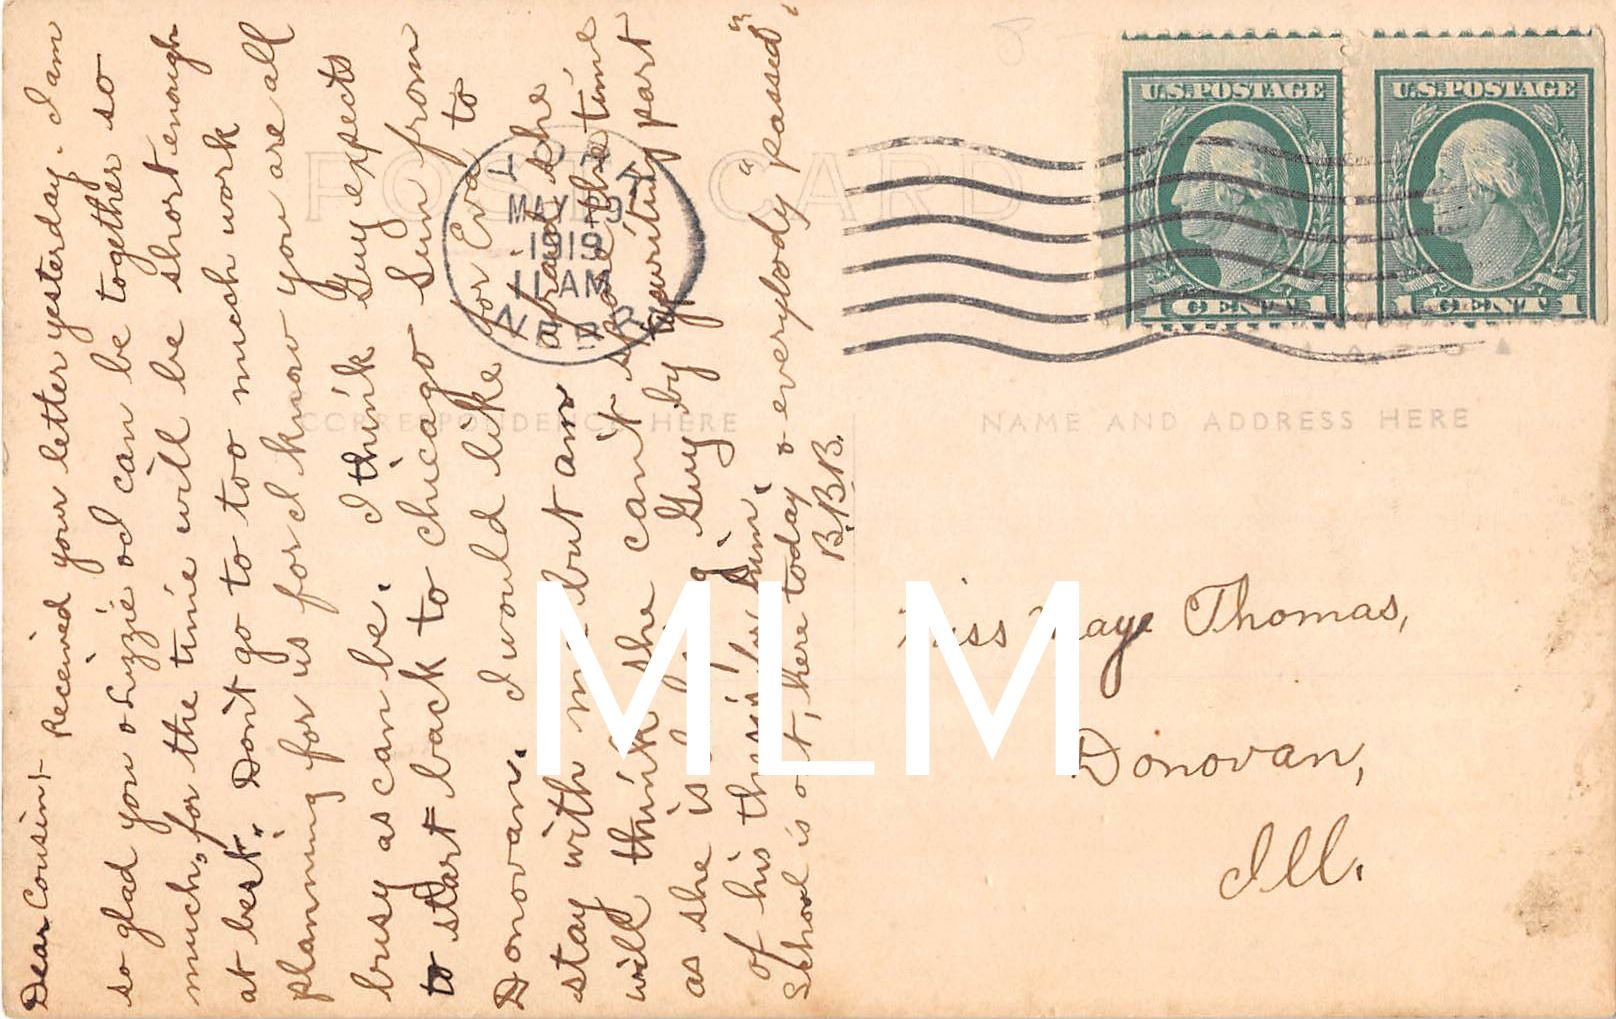 Dear Cousin:- Received your letter yesterday. I am
so glad you & Lizzie & I can be together so
much, for the time will be short enough
at best. Don't go to too much work
planning for us for I know you are all
busy as can be. I think Guy expects
to start back to Chicago Sun from
Donovan. I would like for Eva to
stay with me but am afraid she
will think she can't spare the time
as she is Guy by part
of his thesis for him.
School is out, here today & everybody "passed",
B.B.B.
POST CARD
CORRESPONDENCE HERE
NAME AND ADDRESS HERE
YORK
MAY 29
1919
11 AM
NEBR.
U.S. POSTAGE
1 CENT 1
U.S. POSTAGE
1 CENT 1
Miss Maye Thomas,
Donovan,
Ill.
MLM